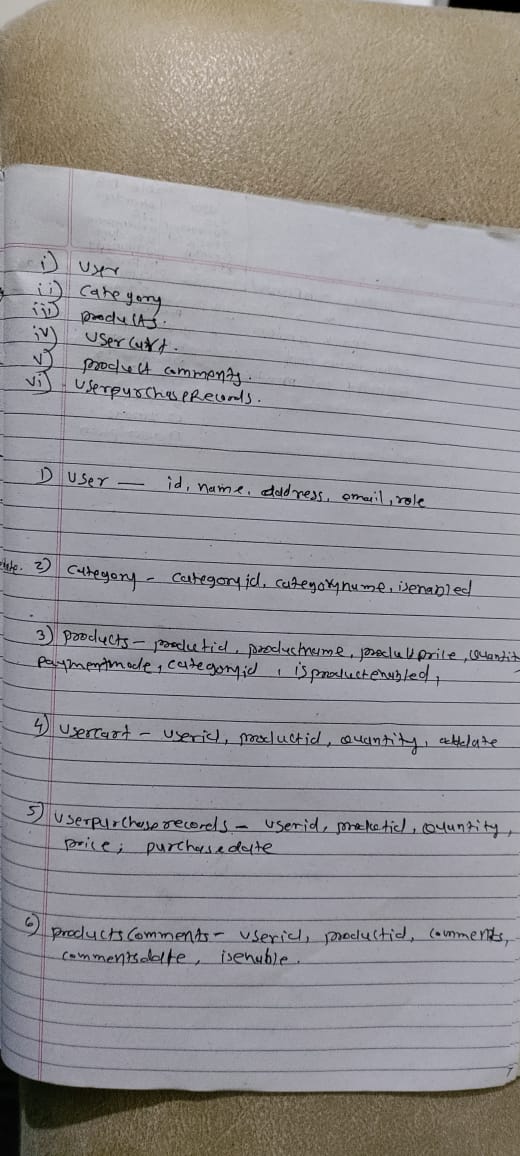 i) User
ii) Category
iii) products.
iv) user cart.
v) product comments.
vi) UserpurchaseRecords.
1) User — id, name, address, email, role
2) Category - Categoryid, categoryname, isenabled
3) Products - productid, productname, productprice, Quantit
Paymentmode, categoryid, isproductenabled,
4) Usercart - userid, productid, quantity, adddate
5) Userpurchaserecords - userid, productid, Quantity,
price, purchasedate
6) productsComments - userid, productid, comments,
commentsdate, isenable.